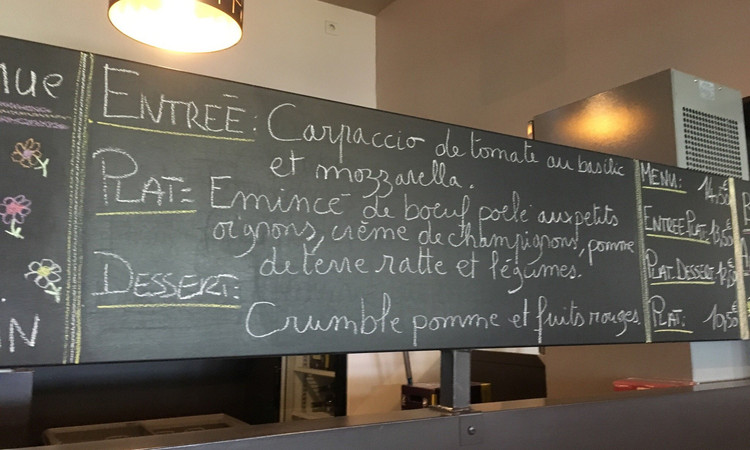 nue
N
ENTREÉ: Carpaccio de tomate au basilic
et mozzarella.
PLAT: Emincé de boeuf poêlé aux petits
oignons, crème de champignons, pomme
de terre ratte et légumes.
DESSERT:
Crumble pomme et fuits rouges.
MENU: 14,50€
ENTREE PLAT:
PLAT DESSERT
PLAT: 10,50€